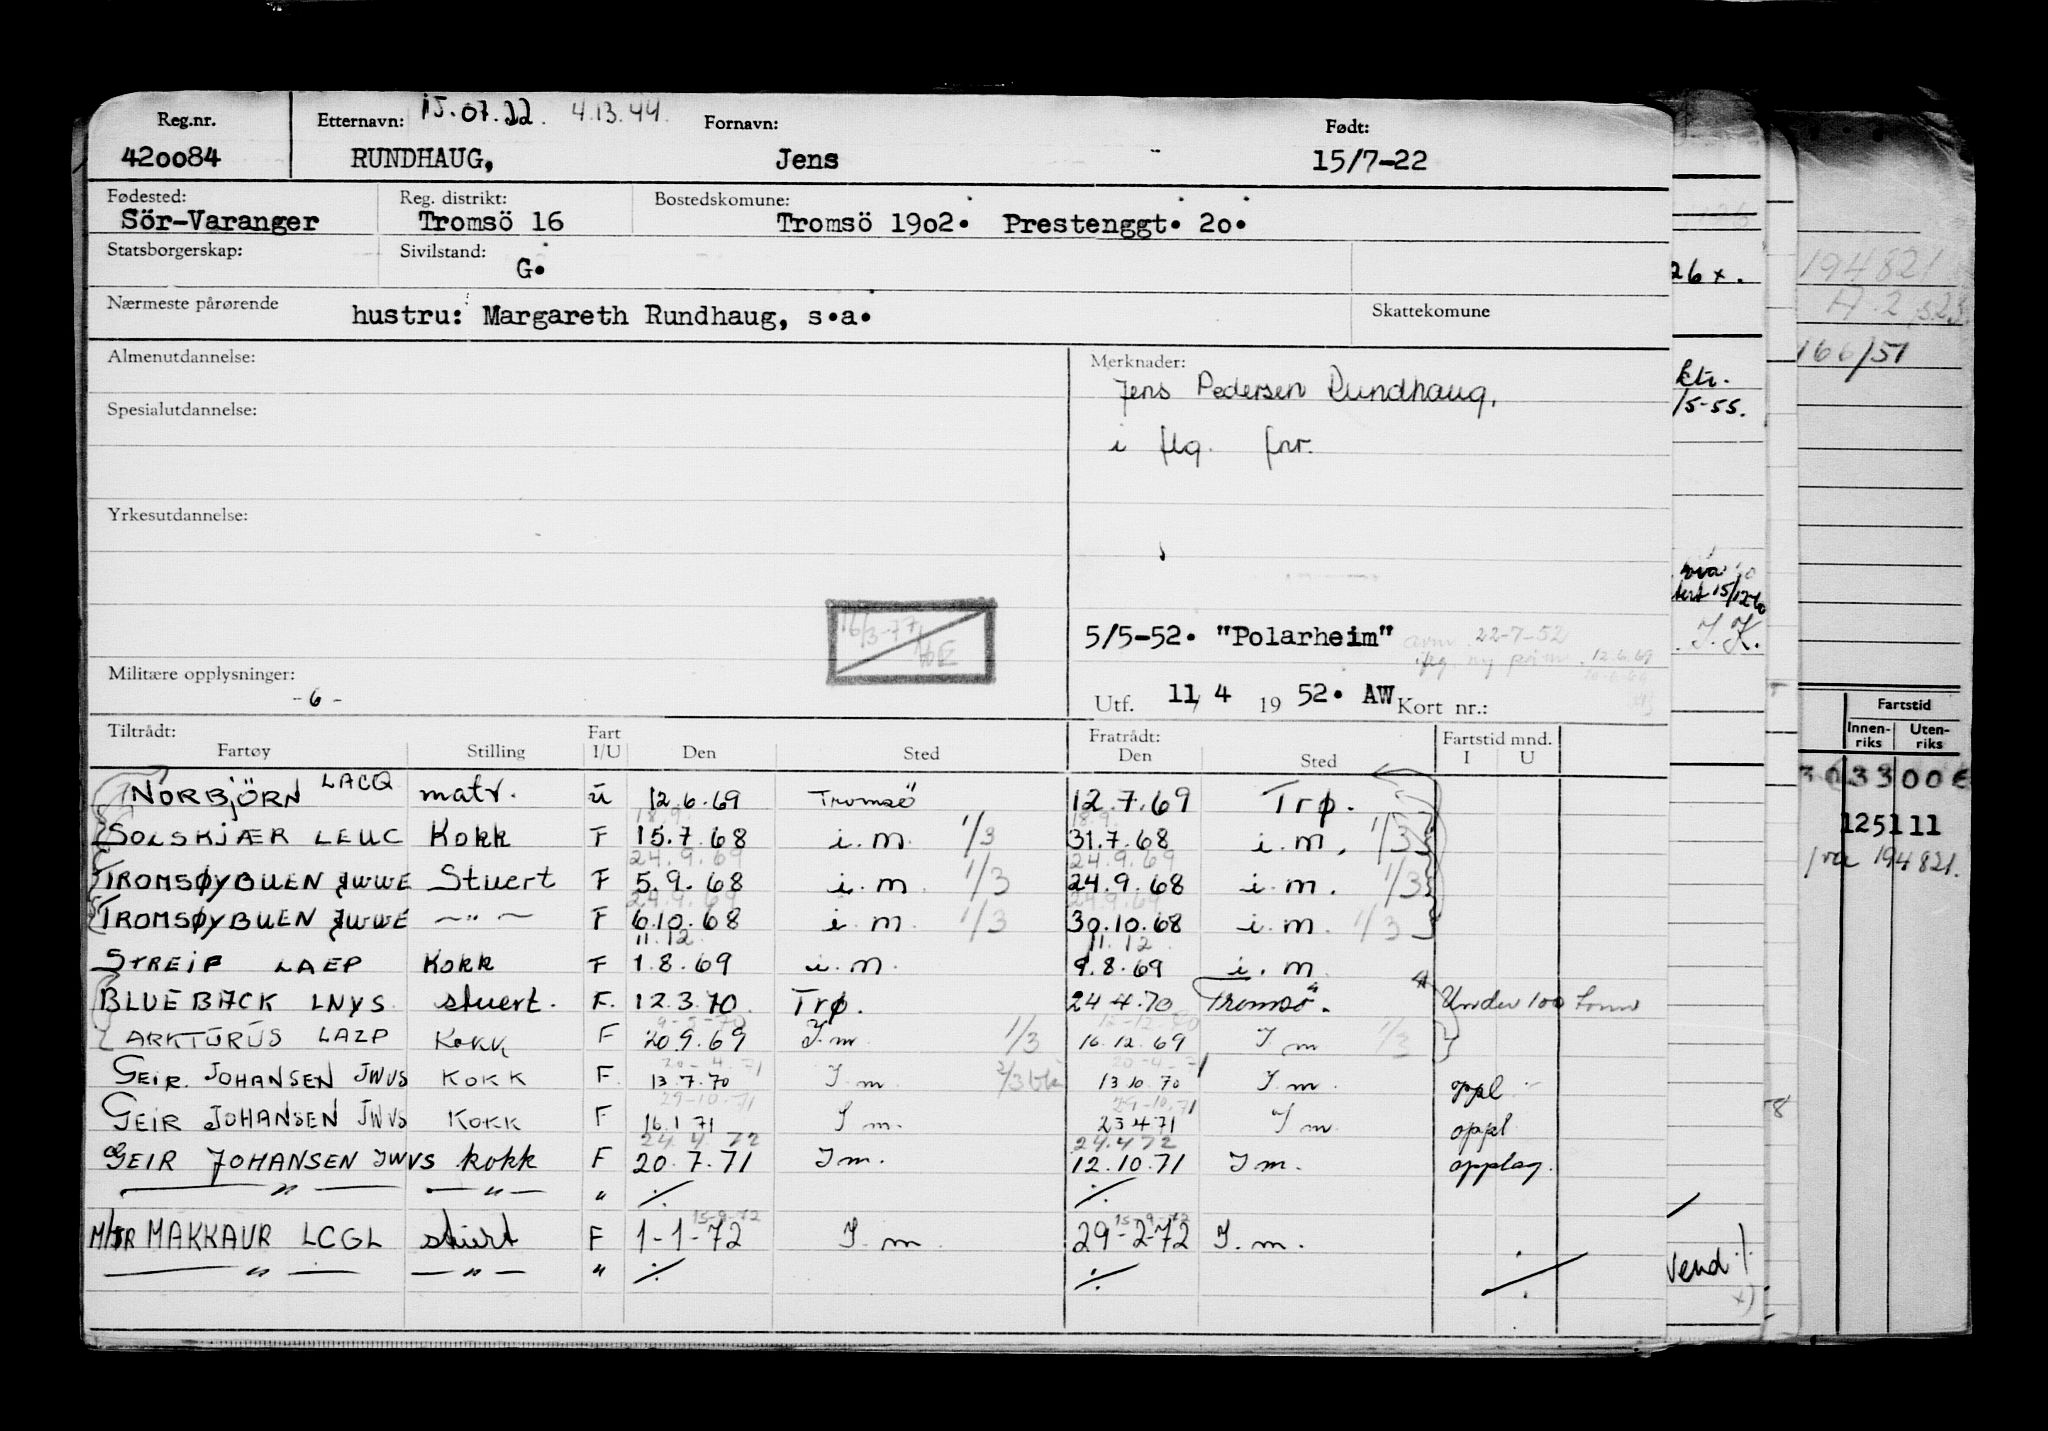 Reg.nr. Etternavn: 15.07.22. 4.13.44. Fornavn: Født:
420084 RUNDHAUG, Jens 15/7-22
Fødested: Reg. distrikt: Bostedskomune:
Sör-Varanger Tromsö 16 Tromsö 1902. Prestenggt. 20.
Statsborgerskap: Sivilstand:
G.
Nærmeste pårørende hustru: Margareth Rundhaug, s.a. Skattekomune
Almenutdannelse: Merknader:
Jens Pedersen Rundhaug,
Spesialutdannelse:
i flg. fnr.
Yrkesutdannelse:
16/3-77
5/5-52. "Polarheim" avm. 22-7-52
12.6.69
Militære opplysninger:
-6-
Utf. 11/4 1952. AW Kort nr.:
Tiltrådt: Fratrådt: Fartstid mnd.
Fartøy Stilling Fart I/U Den Sted Den Sted I U
NORBJÖRN LACQ matr. U 12.6.69 Tromsö 12.7.69 Trø.
18.9. 18.9.
SOLSKJÆR LEUC Kokk F 15.7.68 i.m. 1/3 31.7.68 i.m. 1/3
24.9.69 24.9.69
TROMSØYBUEN JWWE Stuert F 5.9.68 i.m. 1/3 24.9.68 i.m. 1/3
24.9.69 24.9.69
TROMSØYBUEN JWWE -"- F 6.10.68 i.m. 1/3 30.10.68 i.m. 1/3
11.12. 11.12
STREIF LAEP Kokk F 1.8.69 i.m. 9.8.69 i.m.
BLUEBACK LNYS stuert. F. 12.3.70 Trø. 24.4.70 Tromsö. Under 100 tonn
ARKTURUS LAZP Kokk F 20.9.69 I.m. 1/3 16.12.69 I m 1/3
20-4-71 20-4-71
GEIR JOHANSEN JWVS KOKK F. 13.7.70 I m. 13.10.70 I m. oppl.
29-10-71 29-10-71
GEIR JOHANSEN JWVS KOKK F 16.1 71 I m. 23 4 71 I m oppl
24.4.72 24.4 72
GEIR JOHANSEN JWVS kokk F 20.7.71 I m. 12.10.71 I m. opplag.
-"- -"- " ./. ./.
15-9-72 15-9-72
M/TR MAKKAUR LCGL stuert F 1-1-72 I.m. 29-2-72 I.m.
-"- -"- " ./. ./. ./.
26 x.
ktr.
/5-55.
15/12-60
J.K.
Vend ./.
x)
194821
166/51
Fartstid
Innenriks Utenriks
125111
194821.